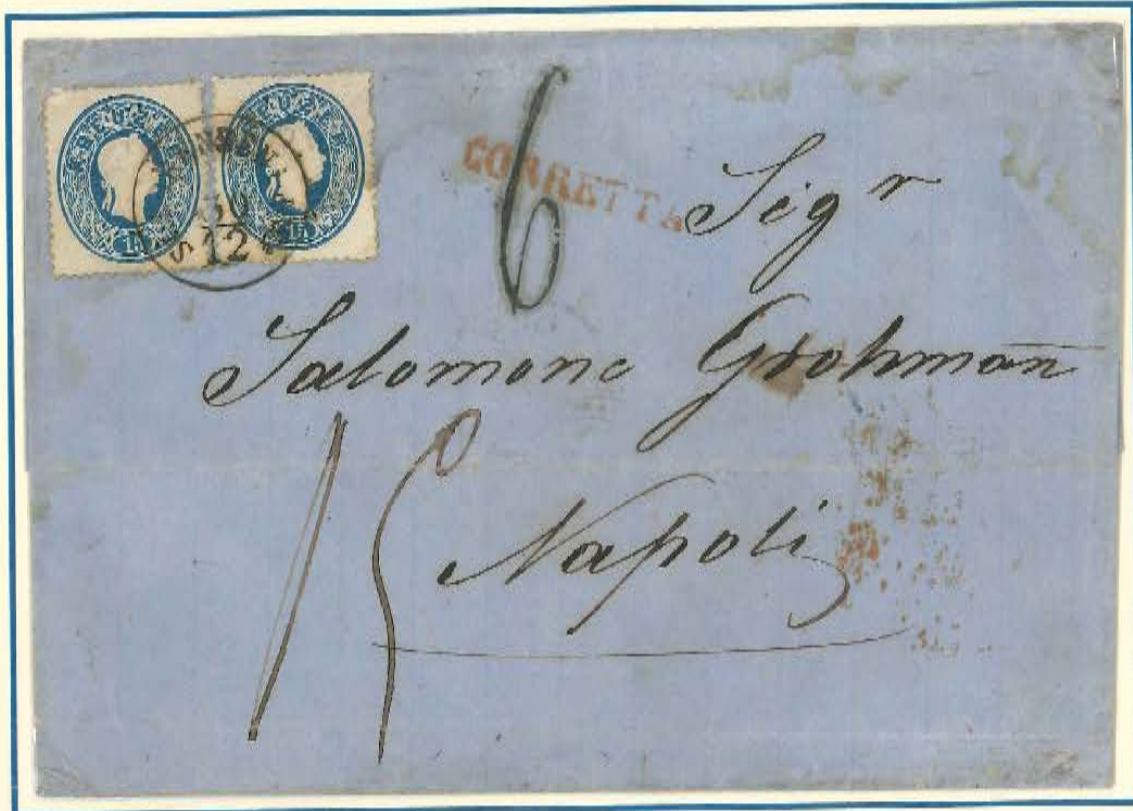 15
15
30
12
6
CORRETTA
Sig r
Salomone Grohman̄
15
Napoli